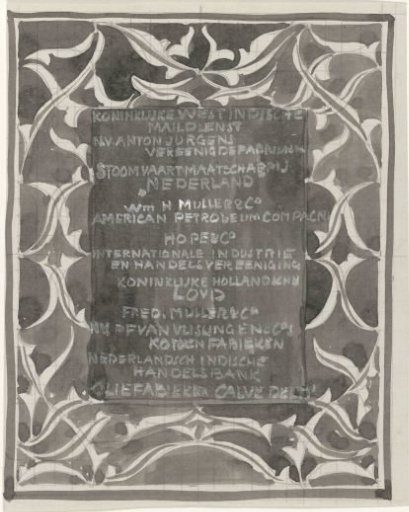 KONINKLIJKE WEST INDISCHE
MAILDIENST
N.V. ANTON JURGENS
VEREENIGDE FABRIEKEN
STOOMVAART MAATSCHAPPIJ
NEDERLAND
Wm H MULLER & Co
AMERICAN PETROLEUM COMPAGNI
HOPE & Co
INTERNATIONALE INDUSTRIE
EN HANDELSVEREENIGING
KONINKLIJKE HOLLANDSCHE
LOYD
FRED. MULLER & Co
VAN VLISSINGEN & Co
KATOEN FABIEKEN
NEDERLANDSCH INDISCHE
HANDELSBANK
OLIEFABIEKEN CALVE DELFT